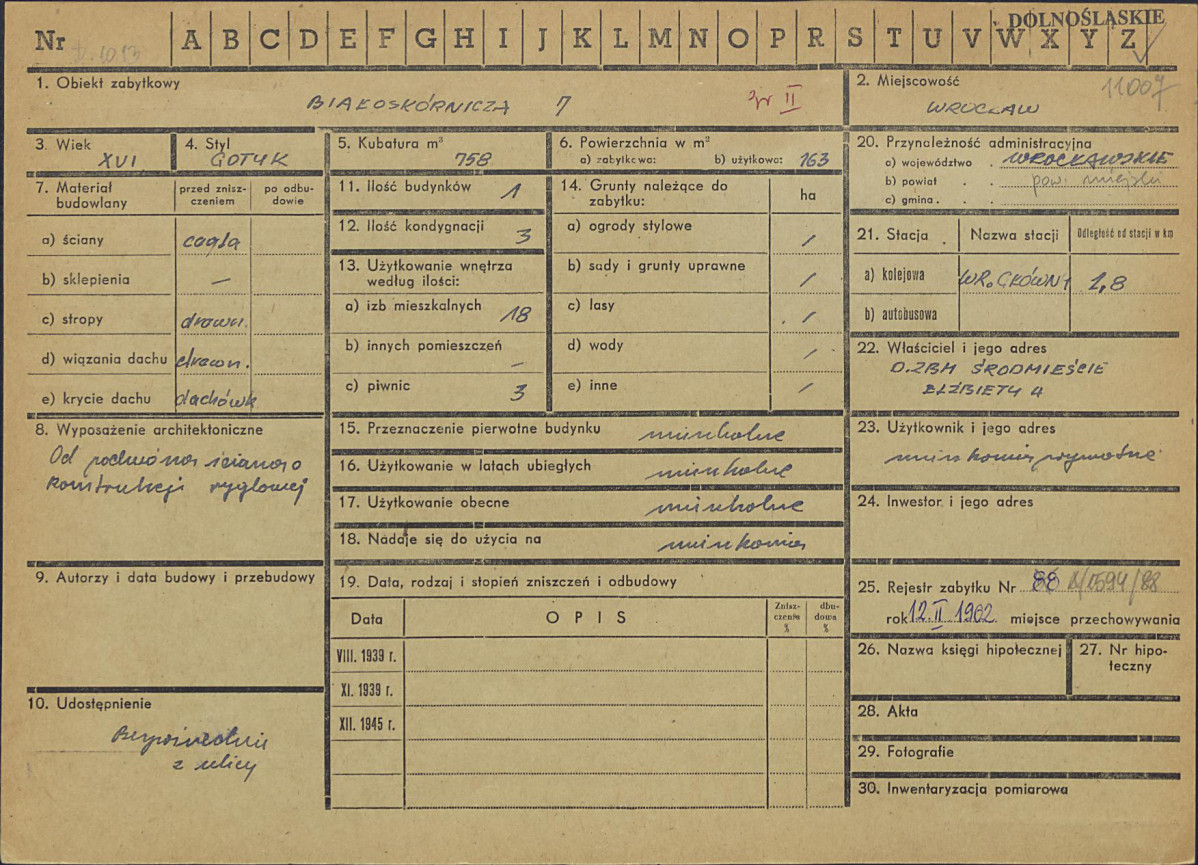 DOLNOŚLĄSKIE
Nr A B C D E F G H I J K L M N O P R S T U V W X Y Z
1. Obiekt zabytkowy
BIAŁOSKÓRNICZA 7
II
2. Miejscowość
11007
WROCŁAW
3. Wiek
XVI
4. Styl
GOTYK
5. Kubatura m³
758
6. Powierzchnia w m²
a) zabytkowa: b) użytkowa: 163
20. Przynależność administracyjna
a) województwo . WROCŁAWSKIE
b) powiat . . pow. miejski
c) gmina . . .
7. Materiał budowlany
przed zniszczeniem
po odbudowie
a) ściany cegła
b) sklepienia —
c) stropy drewn.
d) wiązania dachu drewn.
e) krycie dachu dachówk
11. Ilość budynków 1
12. Ilość kondygnacji 3
13. Użytkowanie wnętrza
według ilości:
a) izb mieszkalnych 18
b) innych pomieszczeń —
c) piwnic 3
14. Grunty należące do
zabytku:
ha
a) ogrody stylowe /
b) sady i grunty uprawne /
c) lasy /
d) wody /
e) inne /
21. Stacja Nazwa stacji Odległość od stacji w km
a) kolejowa WR. GŁÓWNY 1,8
b) autobusowa
22. Właściciel i jego adres
D.ZBM ŚRODMIEŚCIE
ELŻBIETY 4
8. Wyposażenie architektoniczne
Od podwórza ściana o
konstrukcji ryglowej
15. Przeznaczenie pierwotne budynku mieszkalne
16. Użytkowanie w latach ubiegłych mieszkalne
17. Użytkowanie obecne mieszkalne
18. Nadaje się do użycia na mieszkania
23. Użytkownik i jego adres
mieszkania prywatne
24. Inwestor i jego adres
9. Autorzy i data budowy i przebudowy
19. Data, rodzaj i stopień zniszczeń i odbudowy
Data OPIS Zniszczenia % dbudowa %
VIII. 1939 r.
XI. 1939 r.
XII. 1945 r.
25. Rejestr zabytku Nr 88 A/1594/88
rok 12.II.1962 miejsce przechowywania
26. Nazwa księgi hipotecznej
27. Nr hipoteczny
10. Udostępnienie
Bezpośrednie
z ulicy
28. Akta
29. Fotografie
30. Inwentaryzacja pomiarowa